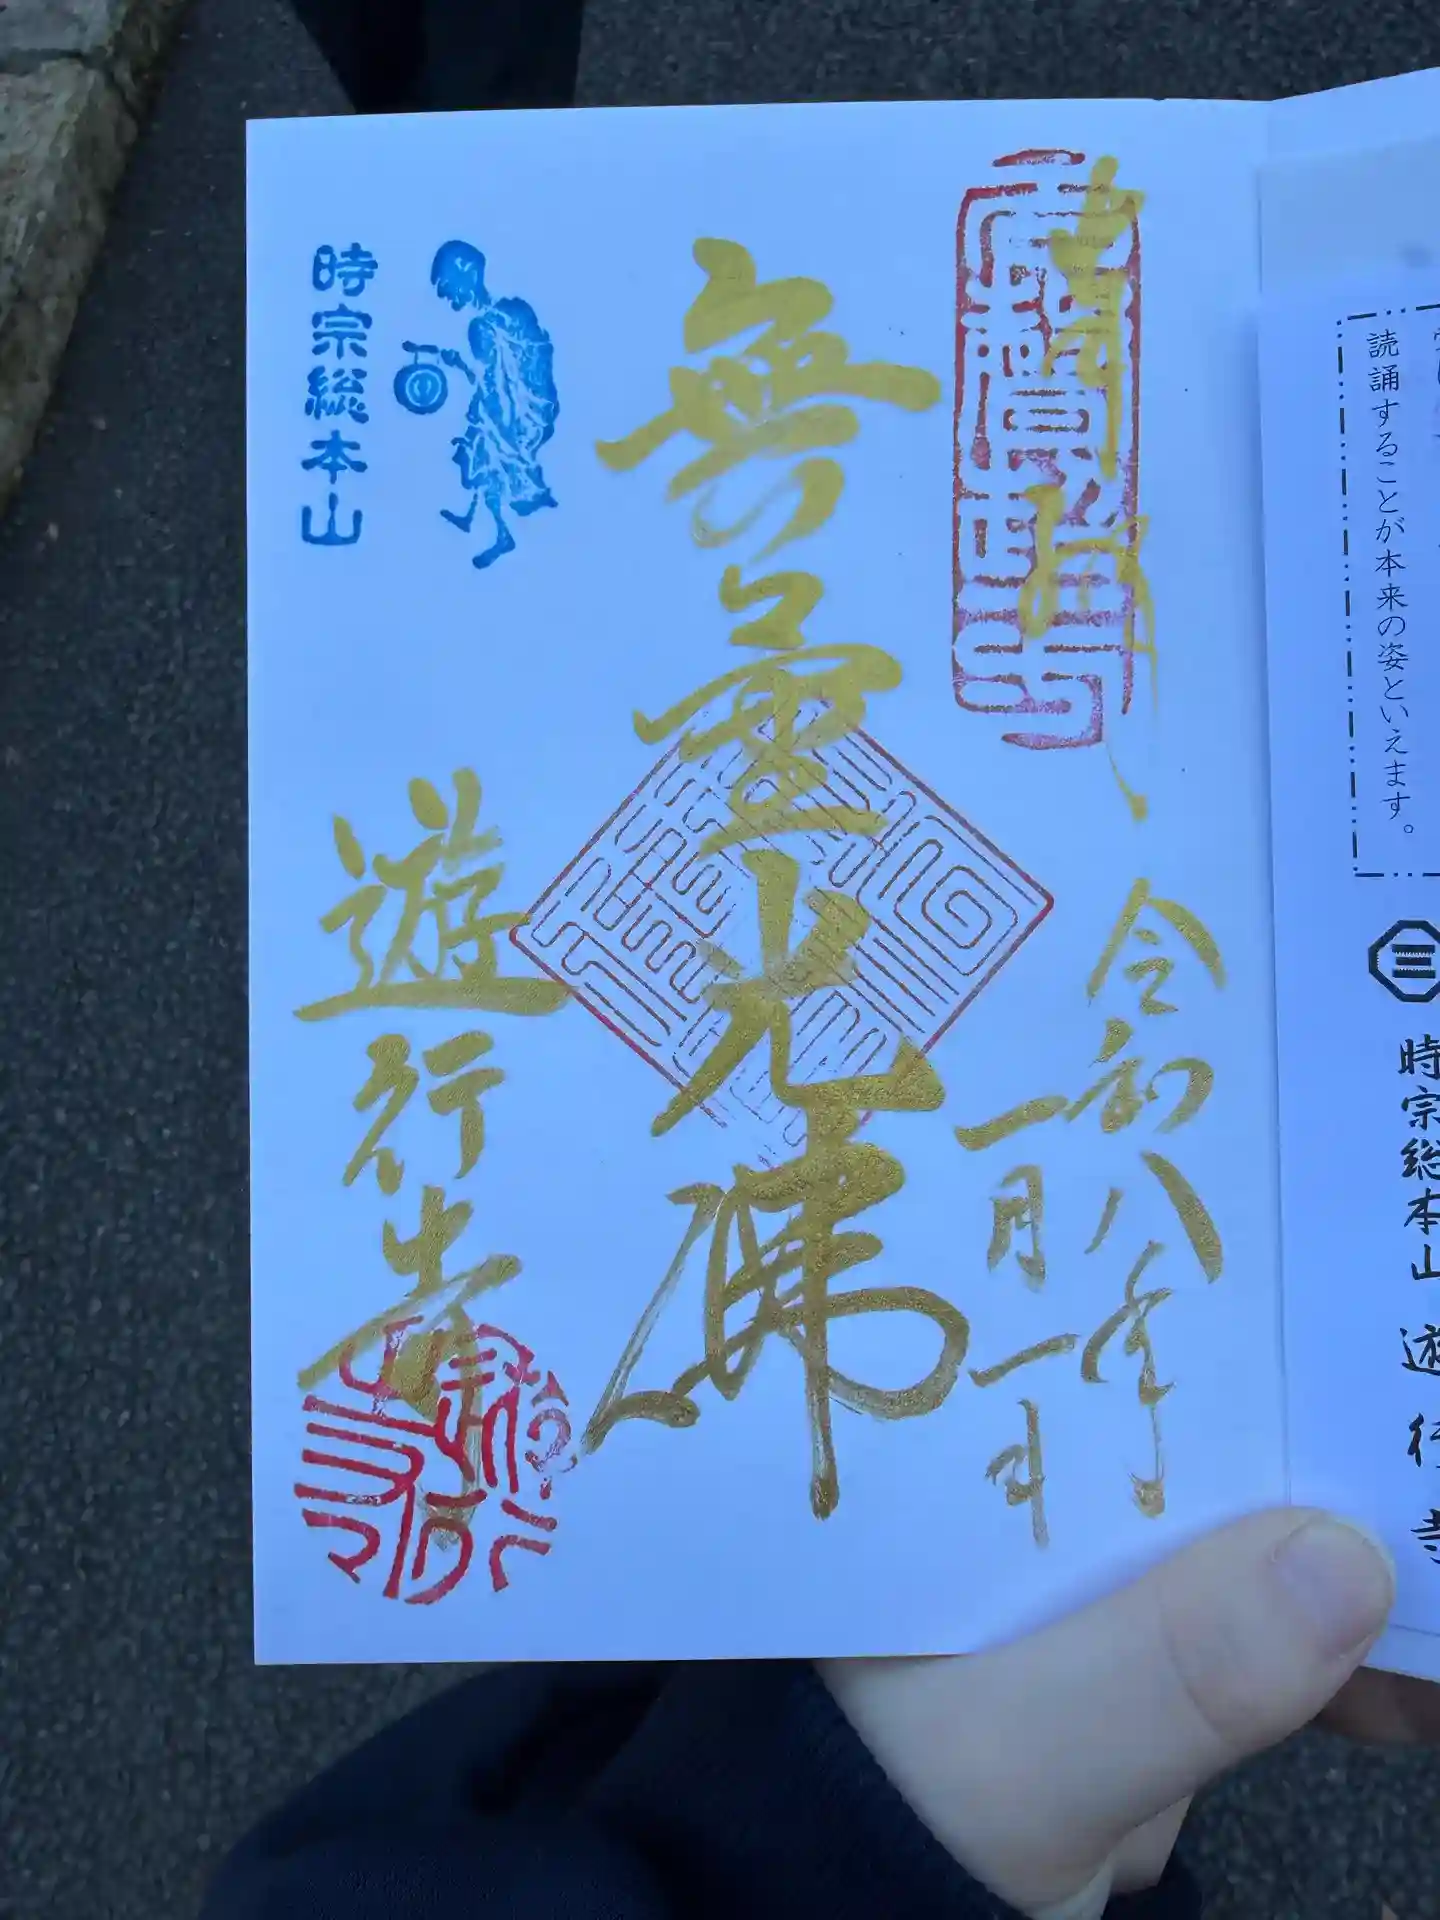 奉拝
令和八年
一月一日
無量光佛
時宗総本山
遊行寺
読誦することが本来の姿といえます。
時宗総本山 遊行寺